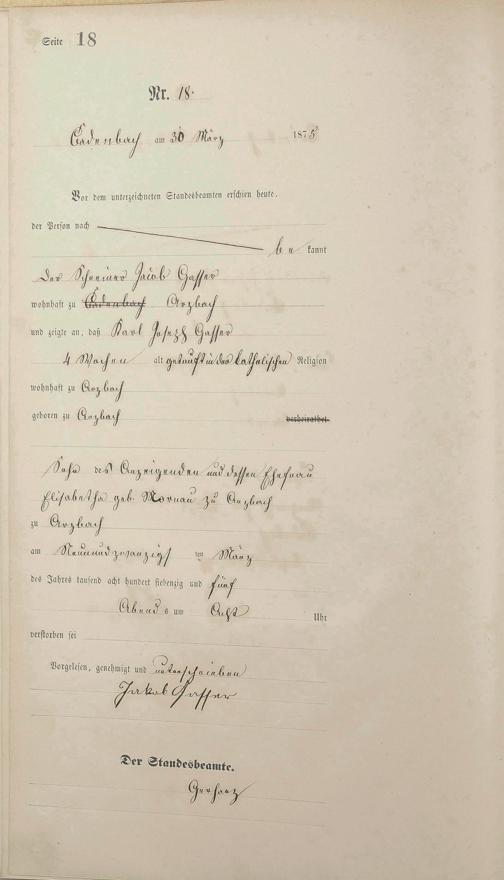 Seite 18
Nr. 18.
Cadenbach am 30 März 1875
Vor dem unterzeichneten Standesbeamten erschien heute,
der Person nach
be kannt
Der Schreiner Jacob Gasser
wohnhaft zu Cadenbach Arzbach
und zeigte an, daß Karl Joseph Gasser
4 Wochen alt getauft in der katholischen Religion
wohnhaft zu Arzbach
geboren zu Arzbach verheirathet
Sohn des Anzeigenden und dessen Ehefrau
Elisabetha geb. Mornau zu Arzbach
zu Arzbach
am Neunundzwanzigst en März
des Jahres tausend acht hundert siebenzig und fünf
Abend s um Acht Uhr
verstorben sei
Vorgelesen, genehmigt und unterschrieben
Jakob Gasser
Der Standesbeamte.
Gerharz